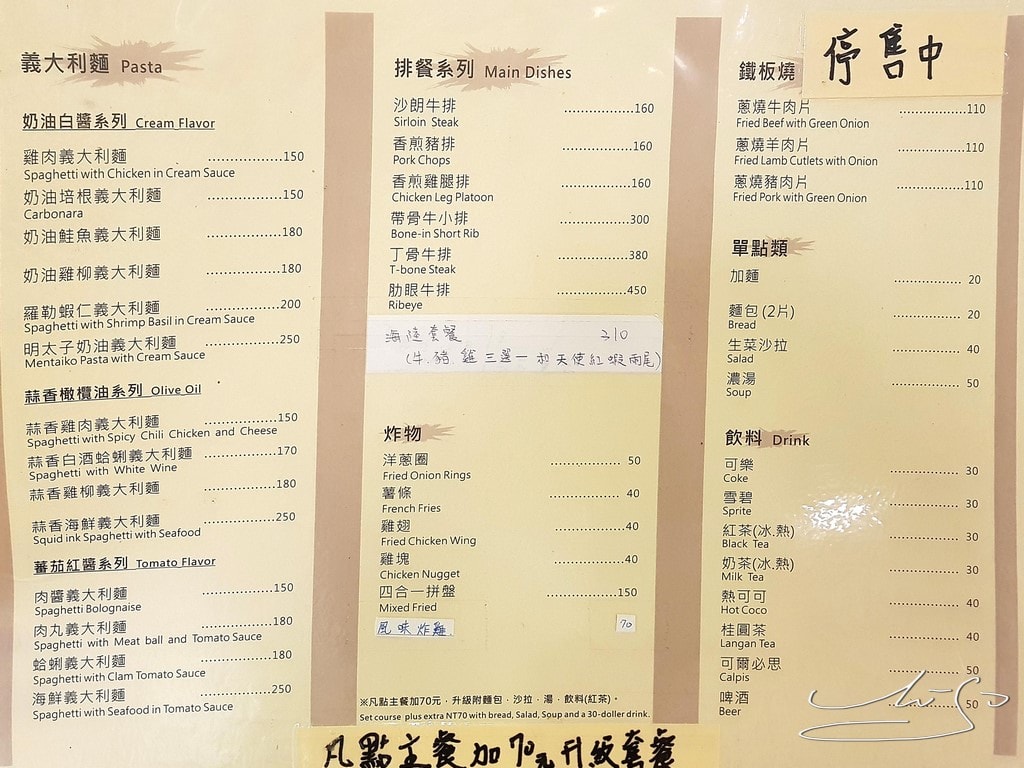 義大利麵 Pasta
奶油白醬系列 Cream Flavor
雞肉義大利麵 ..................150
Spaghetti with Chicken in Cream Sauce
奶油培根義大利麵 ..................150
Carbonara
奶油鮭魚義大利麵 ..................180
奶油雞柳義大利麵 ..................180
羅勒蝦仁義大利麵 ..................200
Spaghetti with Shrimp Basil in Cream Sauce
明太子奶油義大利麵 ..................250
Mentaiko Pasta with Cream Sauce
蒜香橄欖油系列 Olive Oil
蒜香雞肉義大利麵 ..................150
Spaghetti with Spicy Chili Chicken and Cheese
蒜香白酒蛤蜊義大利麵 ..................170
Spaghetti with White Wine
蒜香雞柳義大利麵 ..................180
蒜香海鮮義大利麵 ..................250
Squid ink Spaghetti with Seafood
蕃茄紅醬系列 Tomato Flavor
肉醬義大利麵 ..................150
Spaghetti Bolognaise
肉丸義大利麵 ..................180
Spaghetti with Meat ball and Tomato Sauce
蛤蜊義大利麵 ..................180
Spaghetti with Clam Tomato Sauce
海鮮義大利麵 ..................250
Spaghetti with Seafood in Tomato Sauce
排餐系列 Main Dishes
沙朗牛排 ..................160
Sirloin Steak
香煎豬排 ..................160
Pork Chops
香煎雞腿排 ..................160
Chicken Leg Platoon
帶骨牛小排 ..................300
Bone-in Short Rib
丁骨牛排 ..................380
T-bone Steak
肋眼牛排 ..................450
Ribeye
海陸套餐 310
(牛.豬.雞三選一和天使紅蝦兩尾)
炸物
洋蔥圈 .................. 50
Fried Onion Rings
薯條 .................. 40
French Fries
雞翅 ..................40
Fried Chicken Wing
雞塊 ..................40
Chicken Nugget
四合一拼盤 ..................150
Mixed Fried
風味炸雞. 70
※凡點主餐加70元，升級附麵包，沙拉，湯，飲料(紅茶)。
Set course plus extra NT70 with bread, Salad, Soup and a 30-doller drink.
凡點主餐加70元升級套餐
鐵板燒
停售中
蔥燒牛肉片 ..................110
Fried Beef with Green Onion
蔥燒羊肉片 ..................110
Fried Lamb Cutlets with Onion
蔥燒豬肉片 ..................110
Fried Pork with Green Onion
單點類
加麵 .................. 20
麵包 (2片) .................. 20
Bread
生菜沙拉 .................. 40
Salad
濃湯 .................. 50
Soup
飲料 Drink
可樂 .................. 30
Coke
雪碧 .................. 30
Sprite
紅茶(冰.熱) .................. 30
Black Tea
奶茶(冰.熱) .................. 30
Milk Tea
熱可可 .................. 40
Hot Coco
桂圓茶 .................. 40
Langan Tea
可爾必思 .................. 50
Calpis
啤酒 .................. 50
Beer